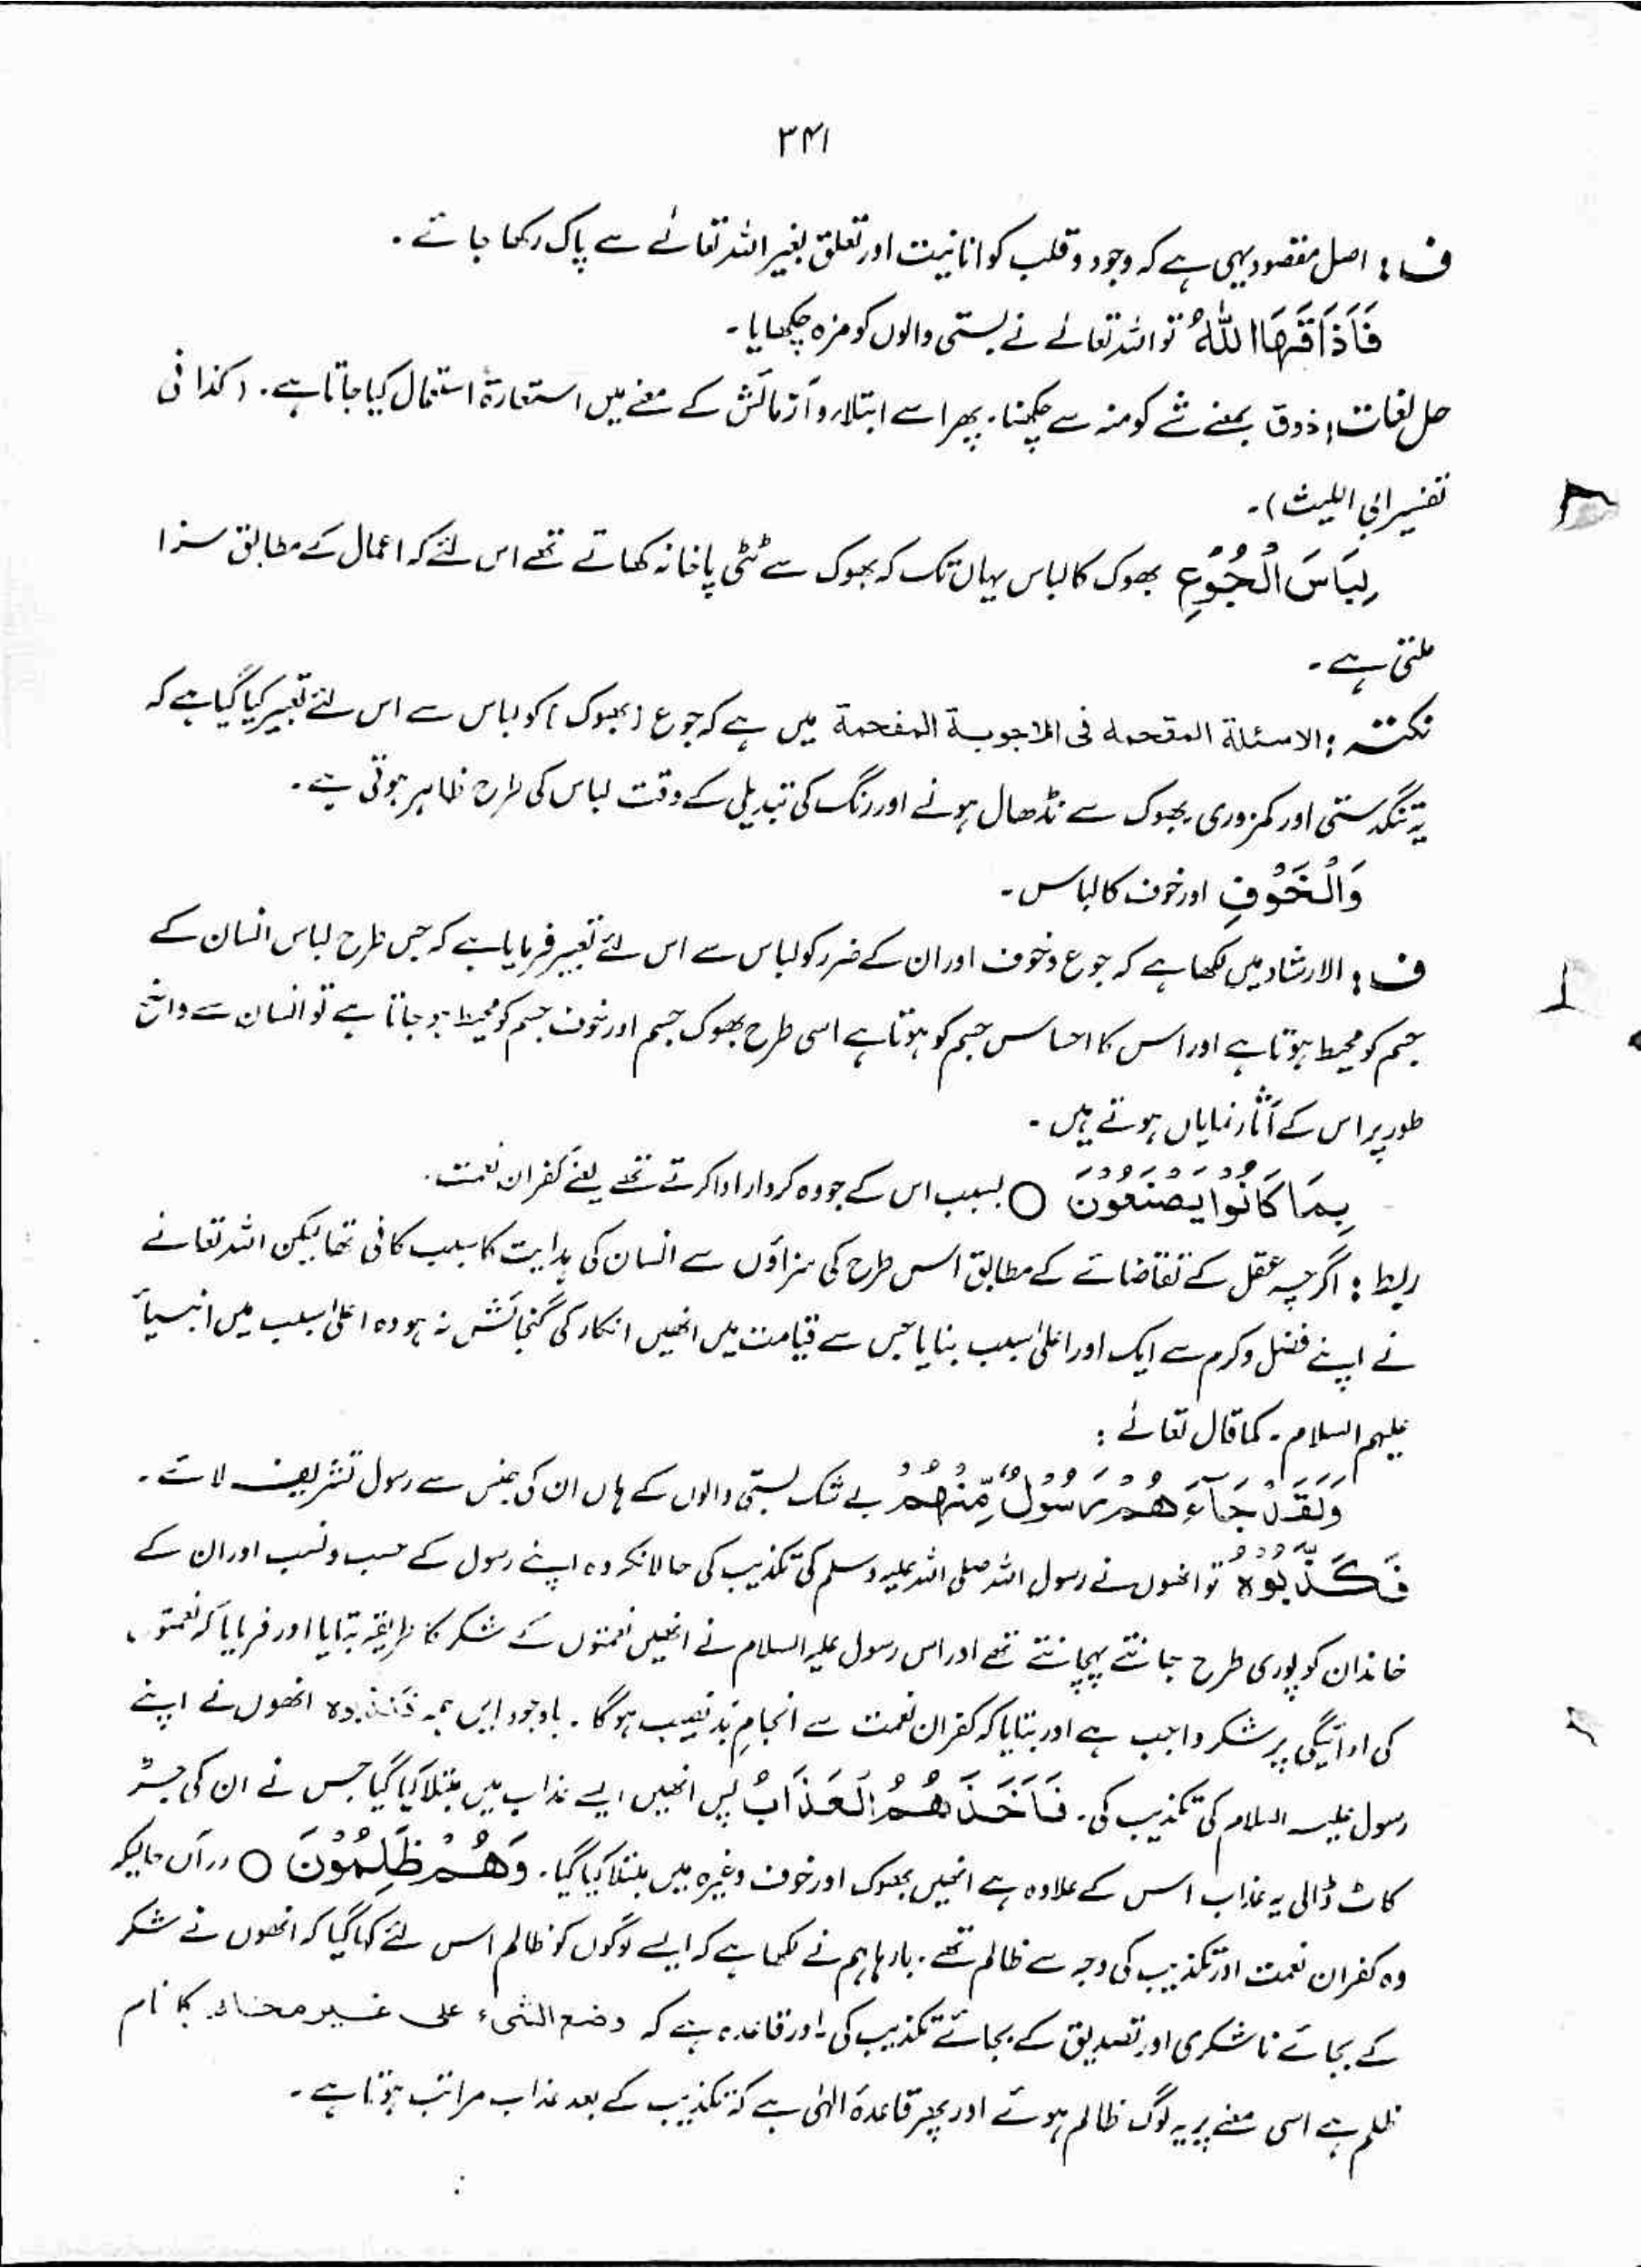 ۳۴۱
ف : اصل مقصود یہی ہے کہ وجود و قلب کو انانیت اور تعلق بغیر اللہ تعالےٰ سے پاک رکھا جائے ۔
فَاَذَاقَہَا اللّٰہُ تو اللہ تعالےٰ نے بستی والوں کو مزہ چکھایا ۔
حل لغات : ذوق بمعنے شے کو منہ سے چکھنا ۔ پھر اسے ابتلاء و آزمائش کے معنے میں استعارۃً استعمال کیا جاتا ہے ۔ (کذا فی
تفسیر ابی اللیث) ۔
لِبَاسَ الْجُوْعِ بھوک کا لباس یہاں تک کہ بھوک سے ٹٹی پاخانہ کھاتے تھے اس لئے کہ اعمال کے مطابق سزا
ملتی ہے ۔
نکتہ : الاسئلة المقحمه فی الاجوبة المفحمة میں ہے کہ جوع (بھوک) کو لباس سے اس لئے تعبیر کیا گیا ہے کہ
یہ تنگدستی اور کمزوری ۔ بھوک سے نڈھال ہونے اور رنگ کی تبدیلی کے وقت لباس کی طرح ظاہر ہوتی ہے ۔
وَالْخَوْفِ اور خوف کا لباس ۔
ف : الارشاد میں لکھا ہے کہ جوع و خوف اور ان کے ضرر کو لباس سے اس لئے تعبیر فرمایا ہے کہ جس طرح لباس انسان کے
جسم کو محیط ہوتا ہے اور اس کا احساس جسم کو ہوتا ہے اسی طرح بھوک جسم اور خوف جسم کو محیط ہو جاتا ہے تو انسان سے واضح
طور پر اس کے آثار نمایاں ہوتے ہیں ۔
بِمَا کَانُوْا یَصْنَعُوْنَ ○ بسبب اس کے جو وہ کردار ادا کرتے تھے یعنے کفران نعمت ۔
ربط : اگرچہ عقل کے تقاضائے کے مطابق اس طرح کی سزاؤں سے انسان کی ہدایت کا سبب کافی تھا لیکن اللہ تعالےٰ
نے اپنے فضل و کرم سے ایک اور اعلیٰ سبب بنایا جس سے قیامت میں انھیں انکار کی گنجائش نہ ہو وہ اعلیٰ سبب میں انبیاء
علیہم السلام ۔ کما قال تعالےٰ :
وَلَقَدْ جَآءَھُمْ رَسُوْلٌ مِّنْھُمْ بے شک بستی والوں کے ہاں ان کی جنس سے رسول تشریف لائے ۔
فَکَذَّبُوْہُ تو انھوں نے رسول اللہ صلی اللہ علیہ وسلم کی تکذیب کی حالانکہ وہ اپنے رسول کے حسب و نسب اور ان کے
خاندان کو پوری طرح جانتے پہچانتے تھے اور اس رسول علیہ السلام نے انھیں نعمتوں کے شکر کا طریقہ بتایا اور فرمایا کہ نعمتوں
کی ادائیگی پر شکر واجب ہے اور بتایا کہ کفران نعمت سے انجامِ بد نصیب ہوگا ۔ باوجود ایں ہمہ فَکَذَّبُوہ انھوں نے اپنے
رسول علیہ السلام کی تکذیب کی ۔ فَاَخَذَھُمُ الْعَذَابُ پس انھیں ایسے عذاب میں مبتلا کیا گیا جس نے ان کی جڑ
کاٹ ڈالی یہ عذاب اس کے علاوہ ہے انھیں بھوک اور خوف وغیرہ میں مبتلا کیا گیا ۔ وَھُمْ ظٰلِمُوْنَ ○ درآں حالیکہ
وہ کفران نعمت اور تکذیب کی وجہ سے ظالم تھے ۔ بارہا ہم نے لکھا ہے کہ ایسے لوگوں کو ظالم اس لئے کہا گیا کہ انھوں نے شکر
کے بجائے ناشکری اور تصدیق کے بجائے تکذیب کی ۔ اور قاعدہ ہے کہ وضع الشیء علی غیر محلہ کا نام
ظلم ہے اسی معنے پر یہ لوگ ظالم ہوئے اور پھر قاعدۂ الٰہی ہے کہ تکذیب کے بعد عذاب مراتب ہوتا ہے ۔